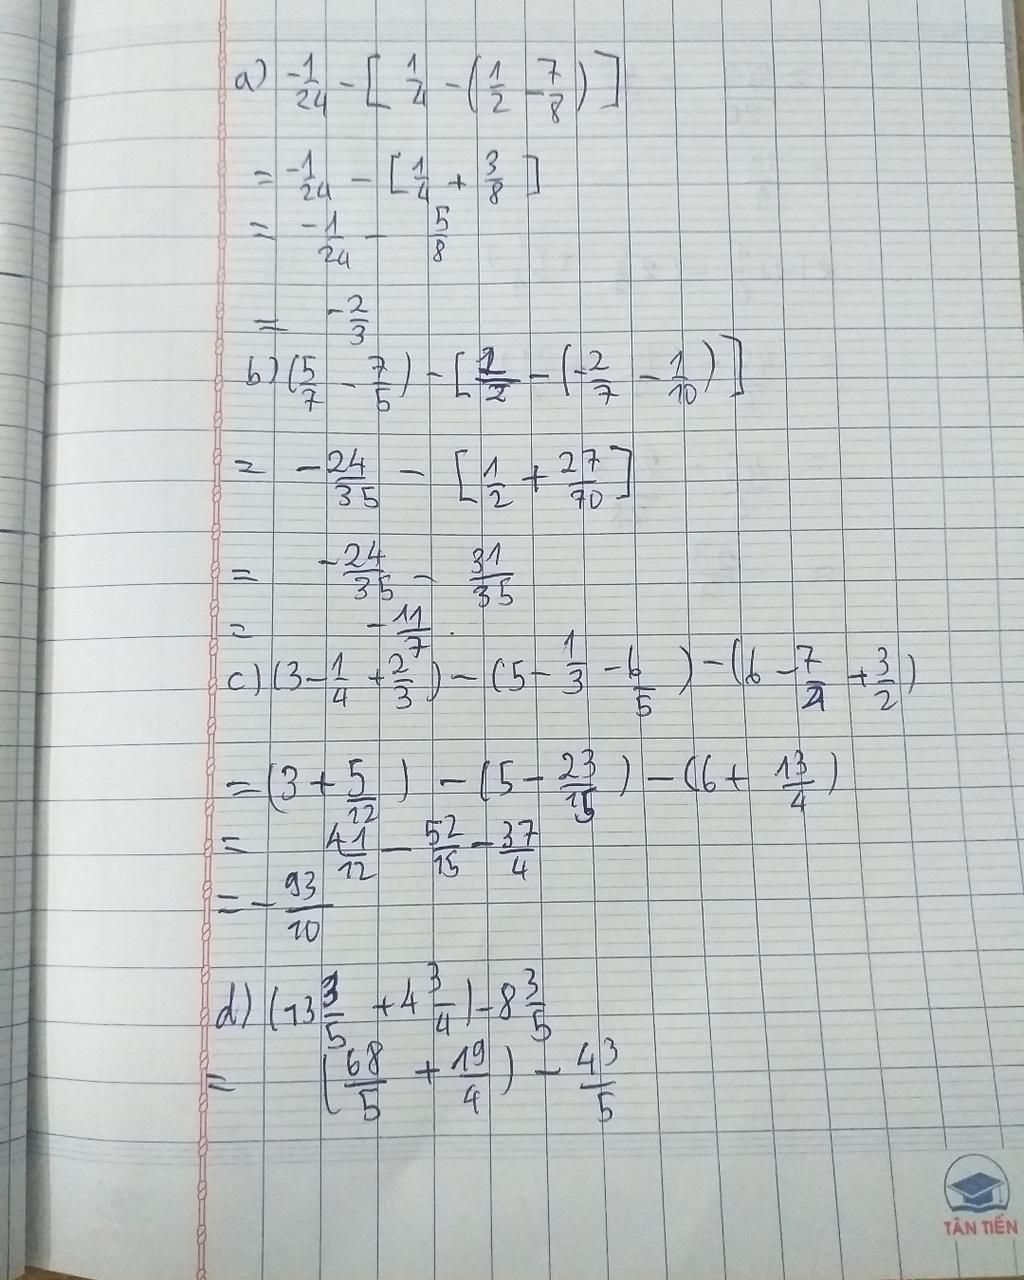 a) -1/24 - [ 1/4 - (1/2 - 7/8) ]
= -1/24 - [ 1/4 + 3/8 ]
= -1/24 - 5/8
= -2/3
b) (5/7 - 7/5) - [ 1/2 - (-2/7 - 1/10) ]
= -24/35 - [ 1/2 + 27/70 ]
= -24/35 - 31/35
= -11/7.
c) (3 - 1/4 + 2/3) - (5 - 1/3 - 6/5) - (6 - 7/4 + 3/2)
= (3 + 5/12) - (5 - 23/15) - (6 + 13/4)
= 41/12 - 52/15 - 37/4
= - 93/10
d) (13 3/5 + 4 3/4) - 8 3/5
= (68/5 + 19/4) - 43/5
TÂN TIẾN